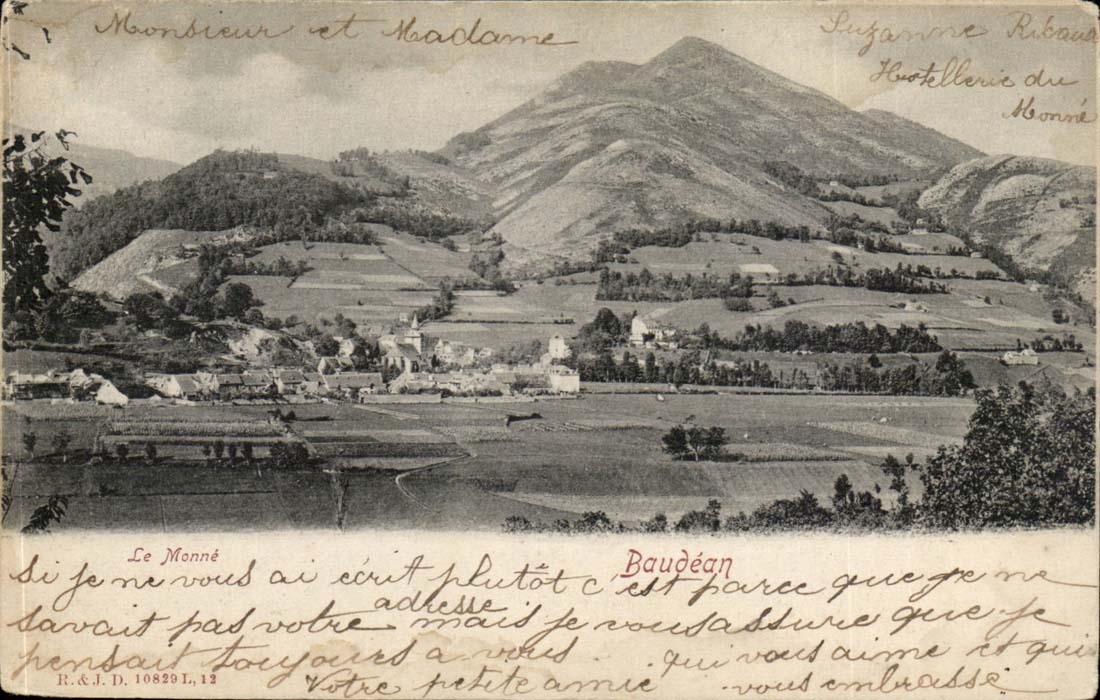 Monsieur et Madame
Suzanne Ribaut
Hostellerie du
Monné
Le Monné
Baudéan
si je ne vous ai écrit plutôt c'est parce que je ne
savait pas votre adresse mais je vous assure que je
pensait toujours a vous. qui vous aime et qui
R. & J. D. 10829 L, 12
Votre petite amie vous embrasse